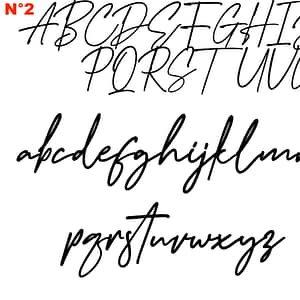 N°2
ABCDEFGHI
PQRSTUV
abcdefghijklmn
pqrstuvwxyz